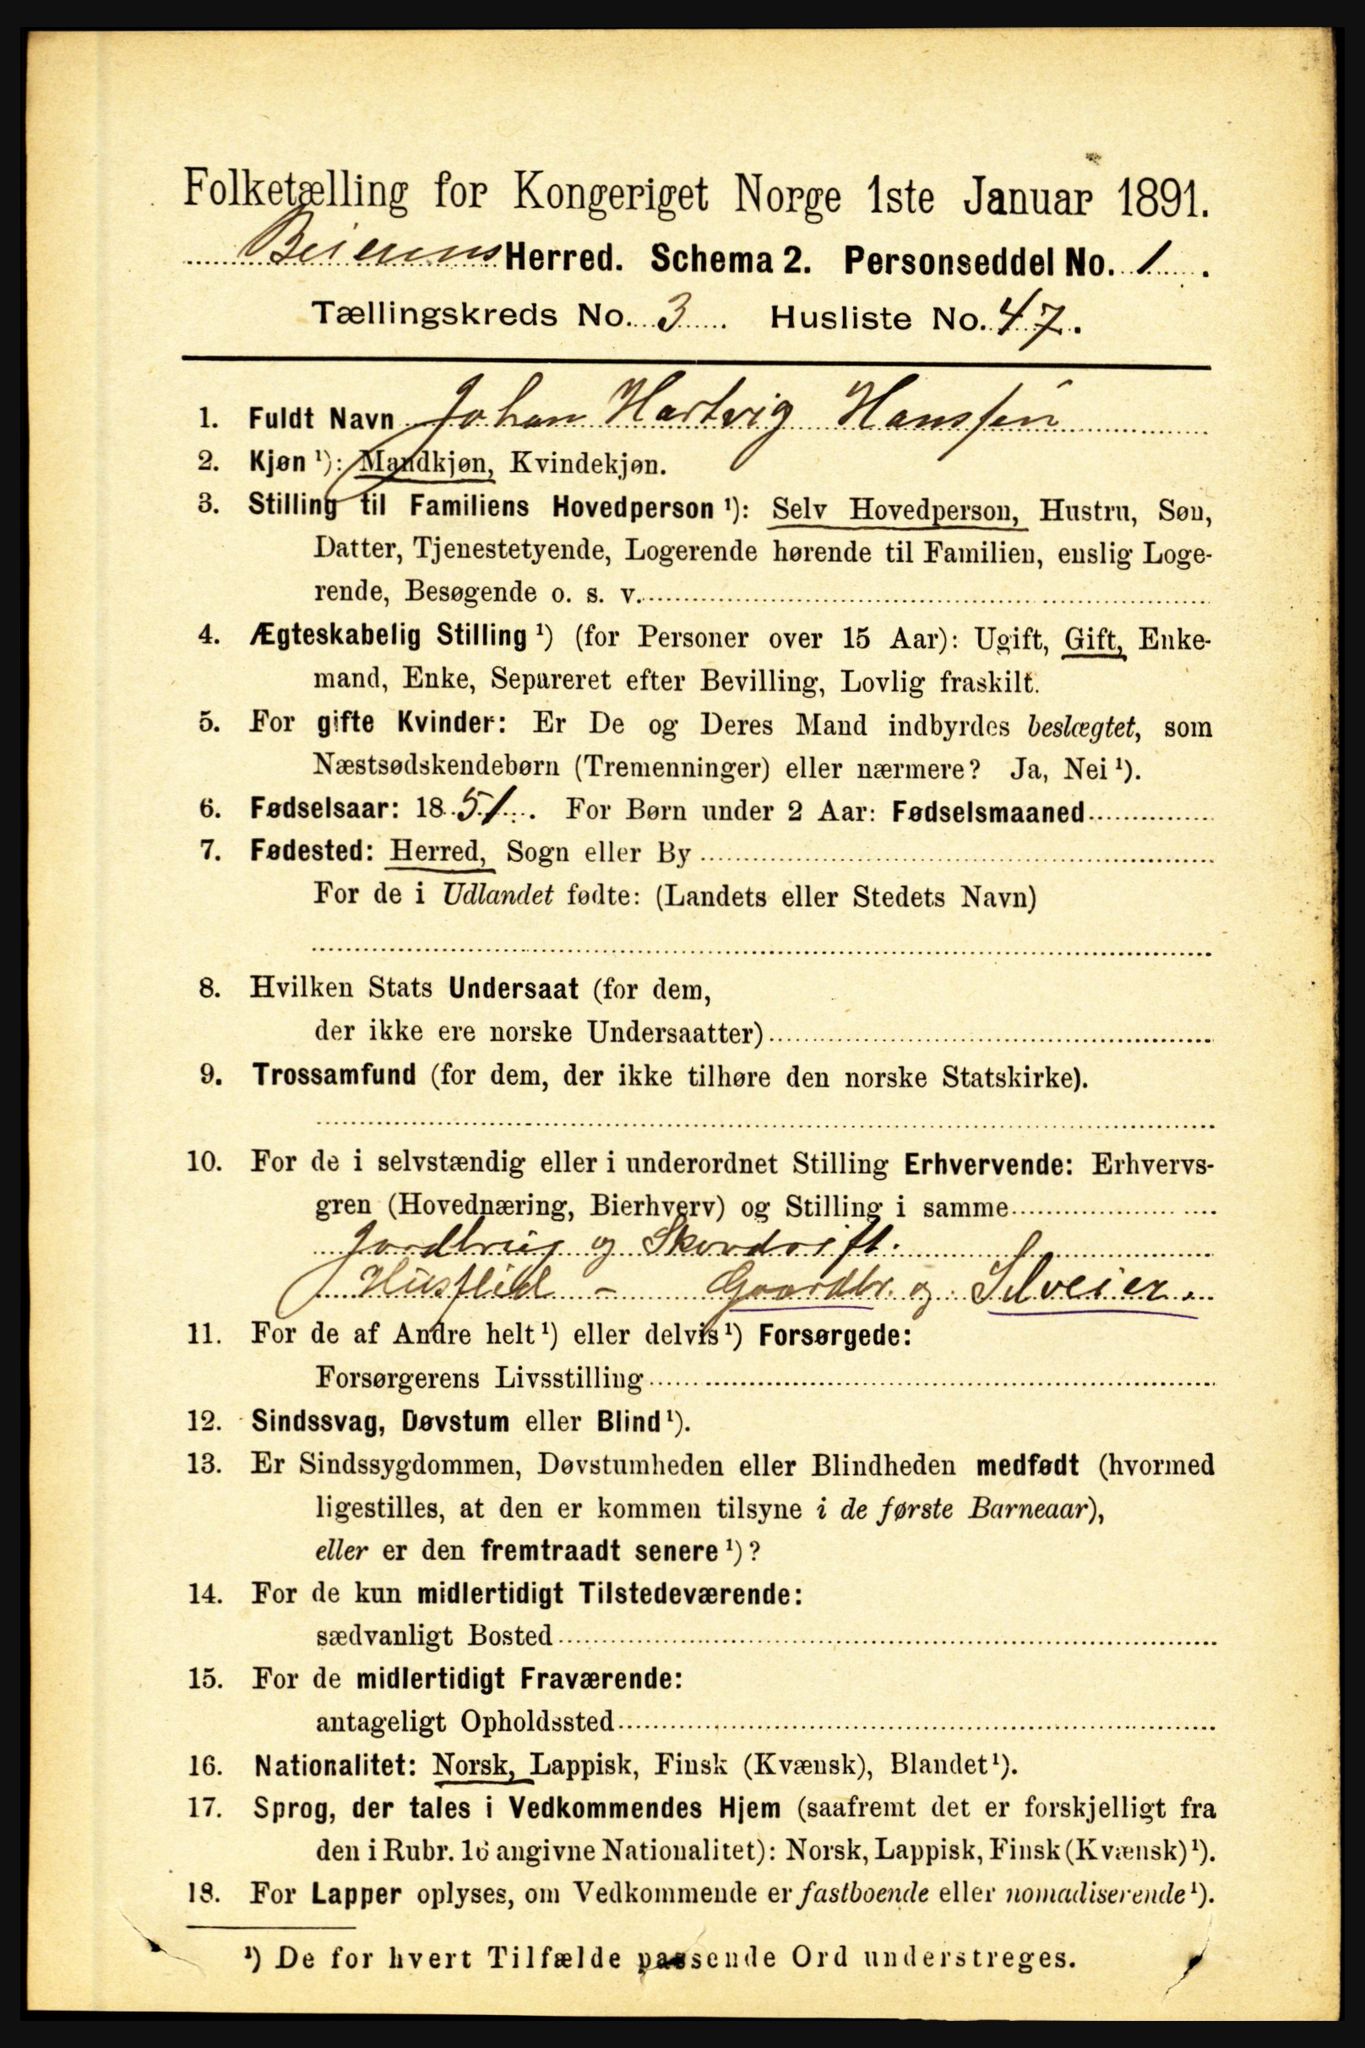 Folketælling for Kongeriget Norge 1ste Januar 1891.
Beierens Herred. Schema 2. Personseddel No. 1.
Tællingskreds No. 3. Husliste No. 47.
1. Fuldt Navn Johan Hartvig Hanssen
2. Kjøn ¹): Mandkjøn, Kvindekjøn.
3. Stilling til Familiens Hovedperson ¹): Selv Hovedperson, Hustru, Søn,
Datter, Tjenestetyende, Logerende hørende til Familien, enslig Loge-
rende, Besøgende o. s. v.
4. Ægteskabelig Stilling ¹) (for Personer over 15 Aar): Ugift, Gift, Enke-
mand, Enke, Separeret efter Bevilling, Lovlig fraskilt.
5. For gifte Kvinder: Er De og Deres Mand indbyrdes beslægtet, som
Næstsødskendebørn (Tremenninger) eller nærmere? Ja, Nei ¹).
6. Fødselsaar: 1851. For Børn under 2 Aar: Fødselsmaaned
7. Fødested: Herred, Sogn eller By
For de i Udlandet fødte: (Landets eller Stedets Navn)
8. Hvilken Stats Undersaat (for dem,
der ikke ere norske Undersaatter)
9. Trossamfund (for dem, der ikke tilhøre den norske Statskirke).
10. For de i selvstændig eller i underordnet Stilling Erhvervende: Erhvervs-
gren (Hovednæring, Bierhverv) og Stilling i samme
Jordbrug og Skovdrift.
Husflid - Gaardbr. og Selveier.
11. For de af Andre helt ¹) eller delvis ¹) Forsørgede:
Forsørgerens Livsstilling
12. Sindssvag, Døvstum eller Blind ¹).
13. Er Sindssygdommen, Døvstumheden eller Blindheden medfødt (hvormed
ligestilles, at den er kommen tilsyne i de første Barneaar),
eller er den fremtraadt senere ¹)?
14. For de kun midlertidigt Tilstedeværende:
sædvanligt Bosted
15. For de midlertidigt Fraværende:
antageligt Opholdssted
16. Nationalitet: Norsk, Lappisk, Finsk (Kvænsk), Blandet ¹).
17. Sprog, der tales i Vedkommendes Hjem (saafremt det er forskjelligt fra
den i Rubr. 16 angivne Nationalitet): Norsk, Lappisk, Finsk (Kvænsk) ¹).
18. For Lapper oplyses, om Vedkommende er fastboende eller nomadiserende ¹).
¹) De for hvert Tilfælde passende Ord understreges.